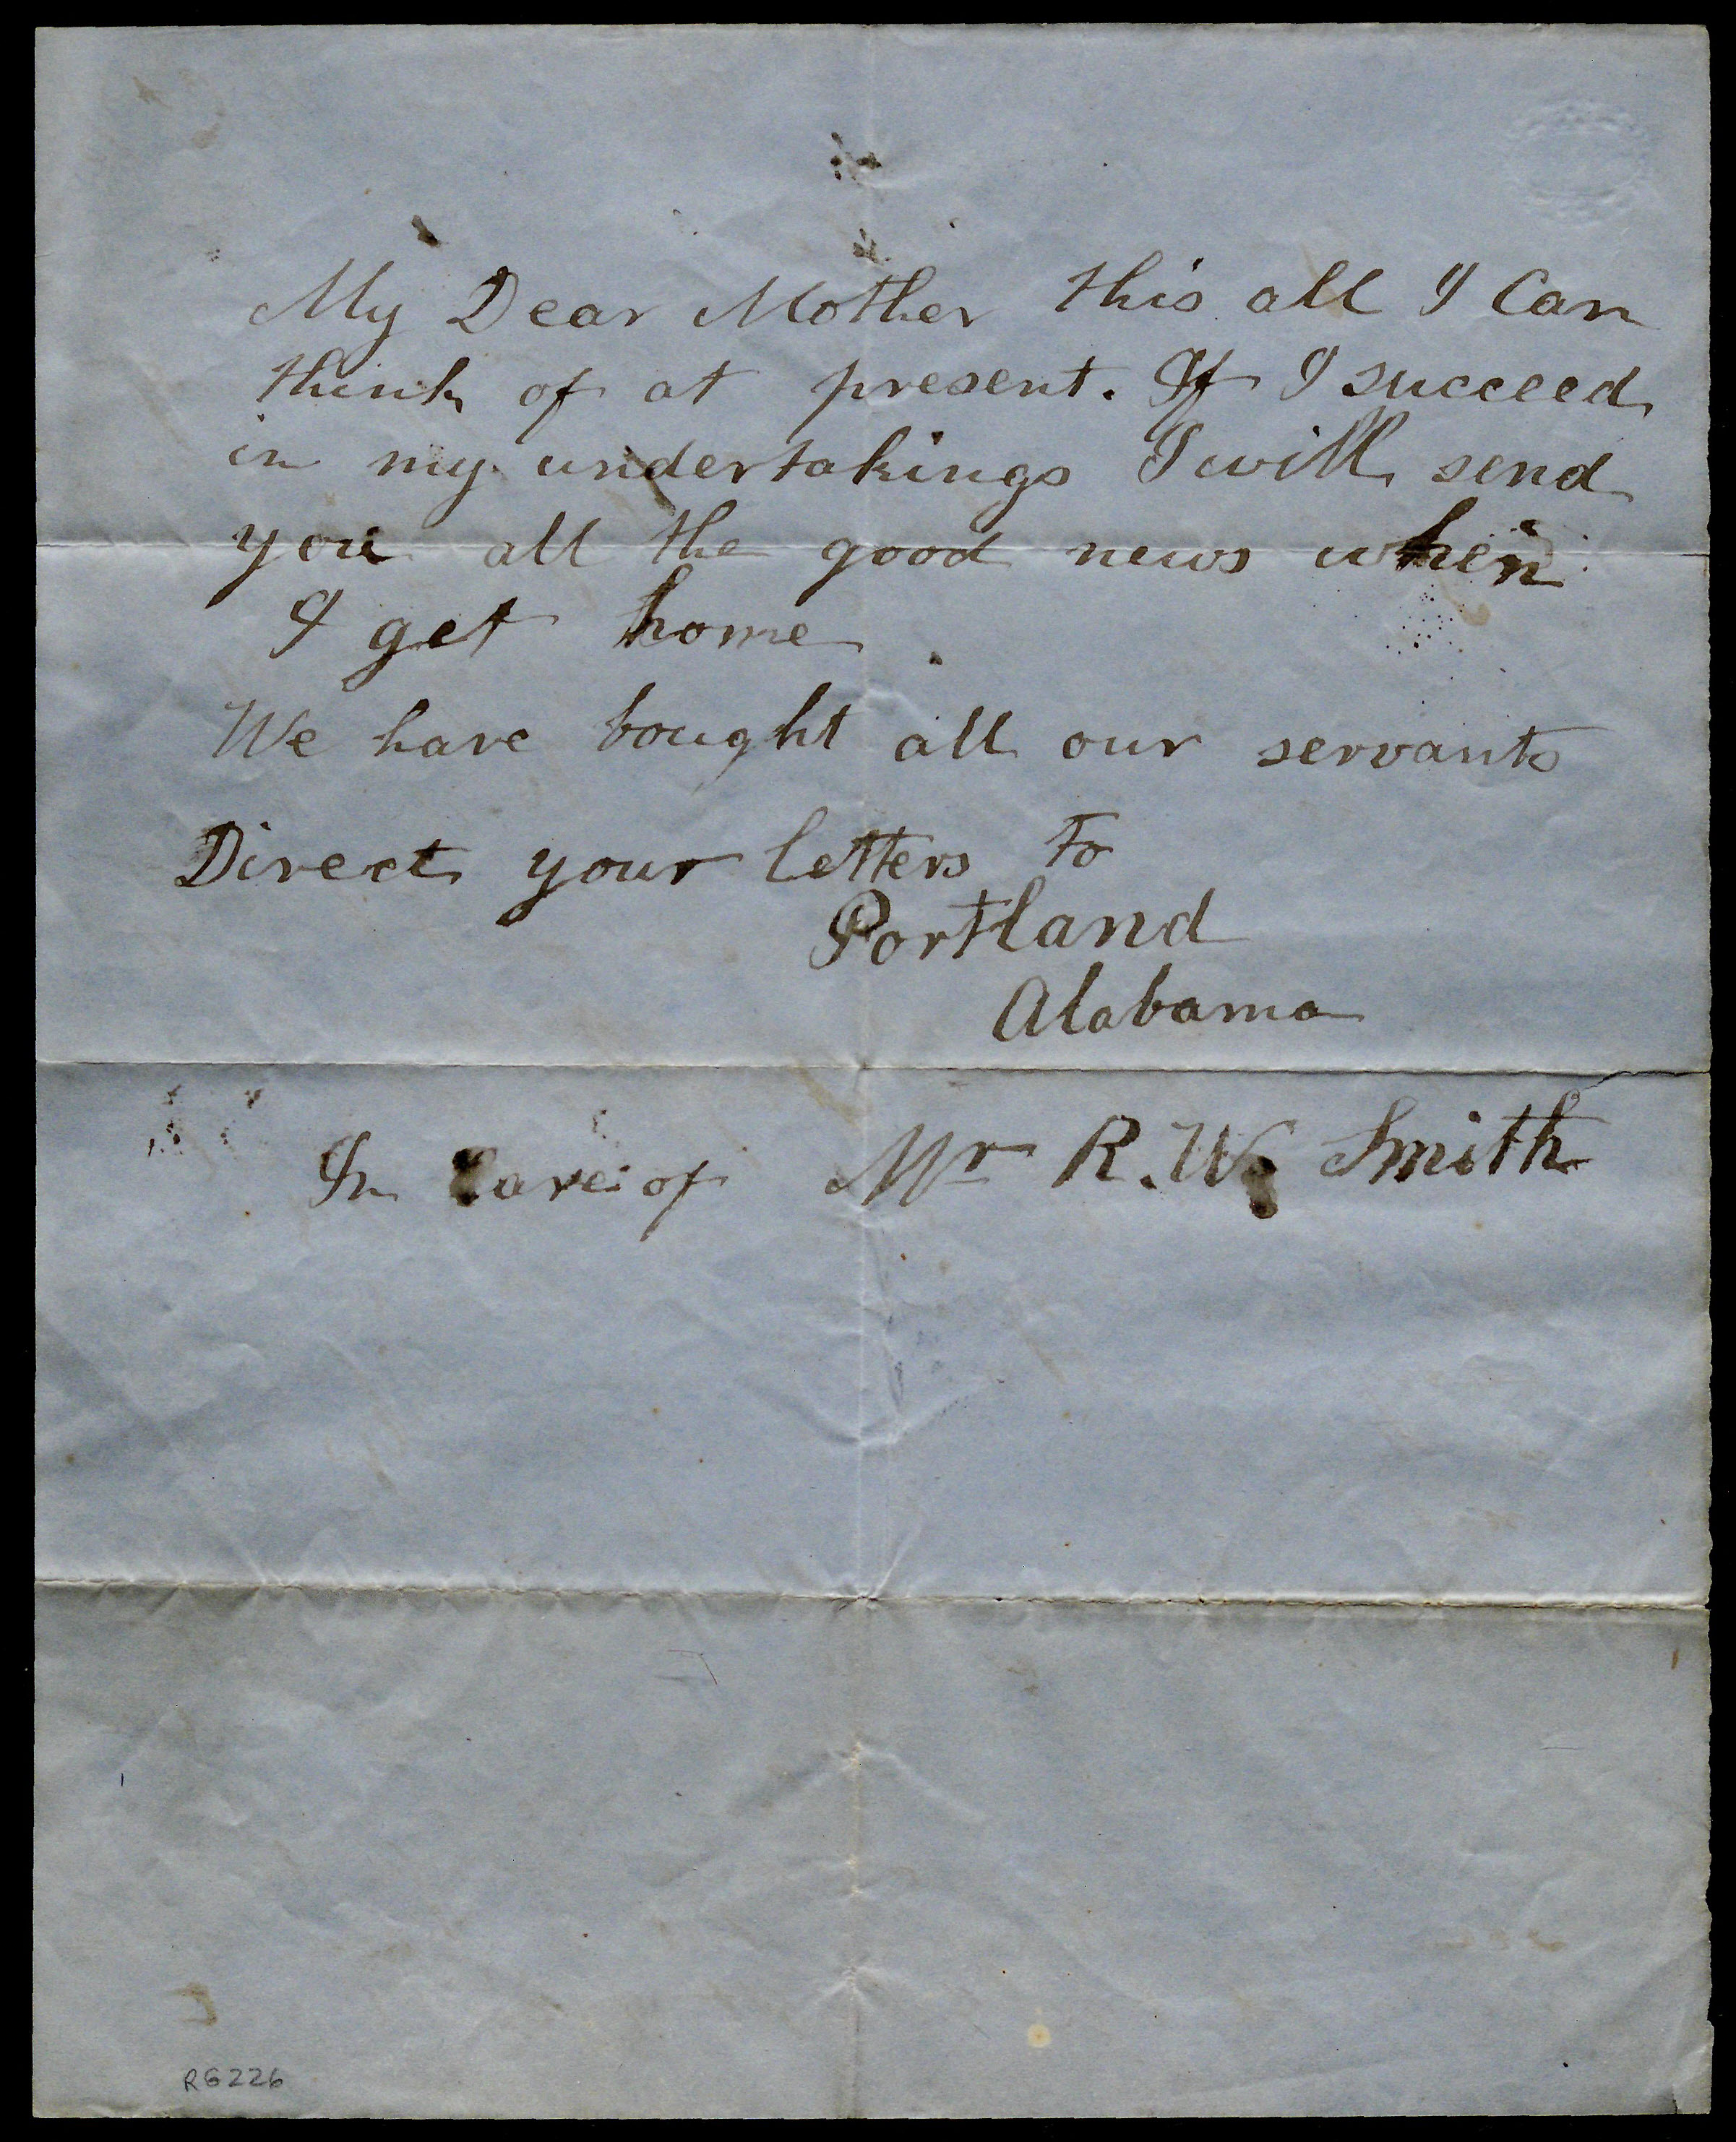 My Dear Mother this all I Can
think of at present. If I succeed
in my undertakings I will send
you all the good news when
I get home.
We have bought all our servants
Direct your letters to
Portland
Alabama
In Care of Mr R. W. Smith
RG226